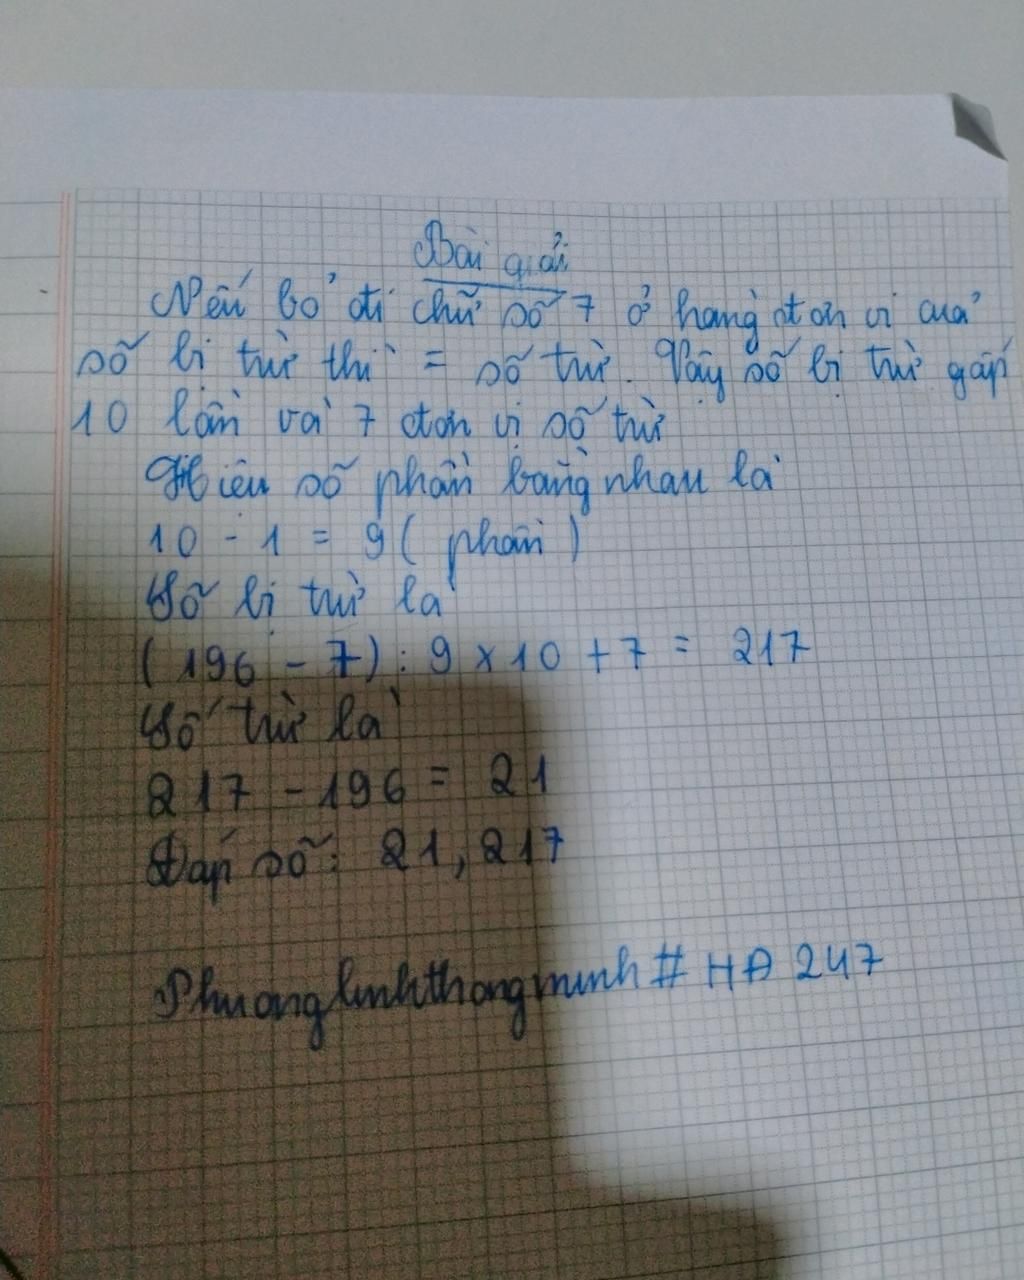 Bài giải
Nếu bỏ đi chữ số 7 ở hàng đơn vị của
số bị trừ thì = số trừ. Vậy số bị trừ gấp
10 lần và 7 đơn vị số trừ
Hiệu số phần bằng nhau là
10 - 1 = 9 ( phần )
Số bị trừ là
( 196 - 7) : 9 x 10 + 7 = 217
Số trừ là
217 - 196 = 21
Đáp số: 21, 217
Phuonglinhthongminh # HĐ 247